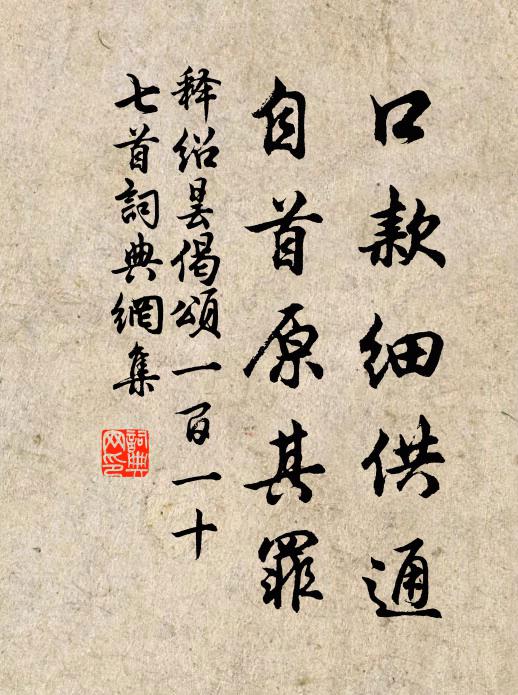 口款细供通
自首原其罪
释绍昙偈頌一百一十
七首詞典網集
詞典網印